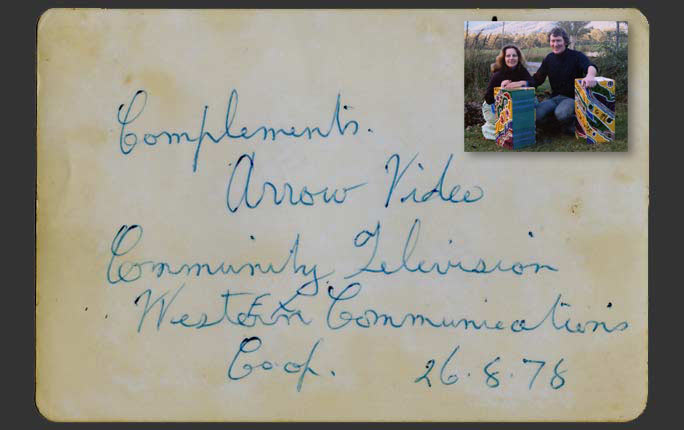 Complements.
Arrow Video
Community Television
Western Communications
Coop. 26.8.78